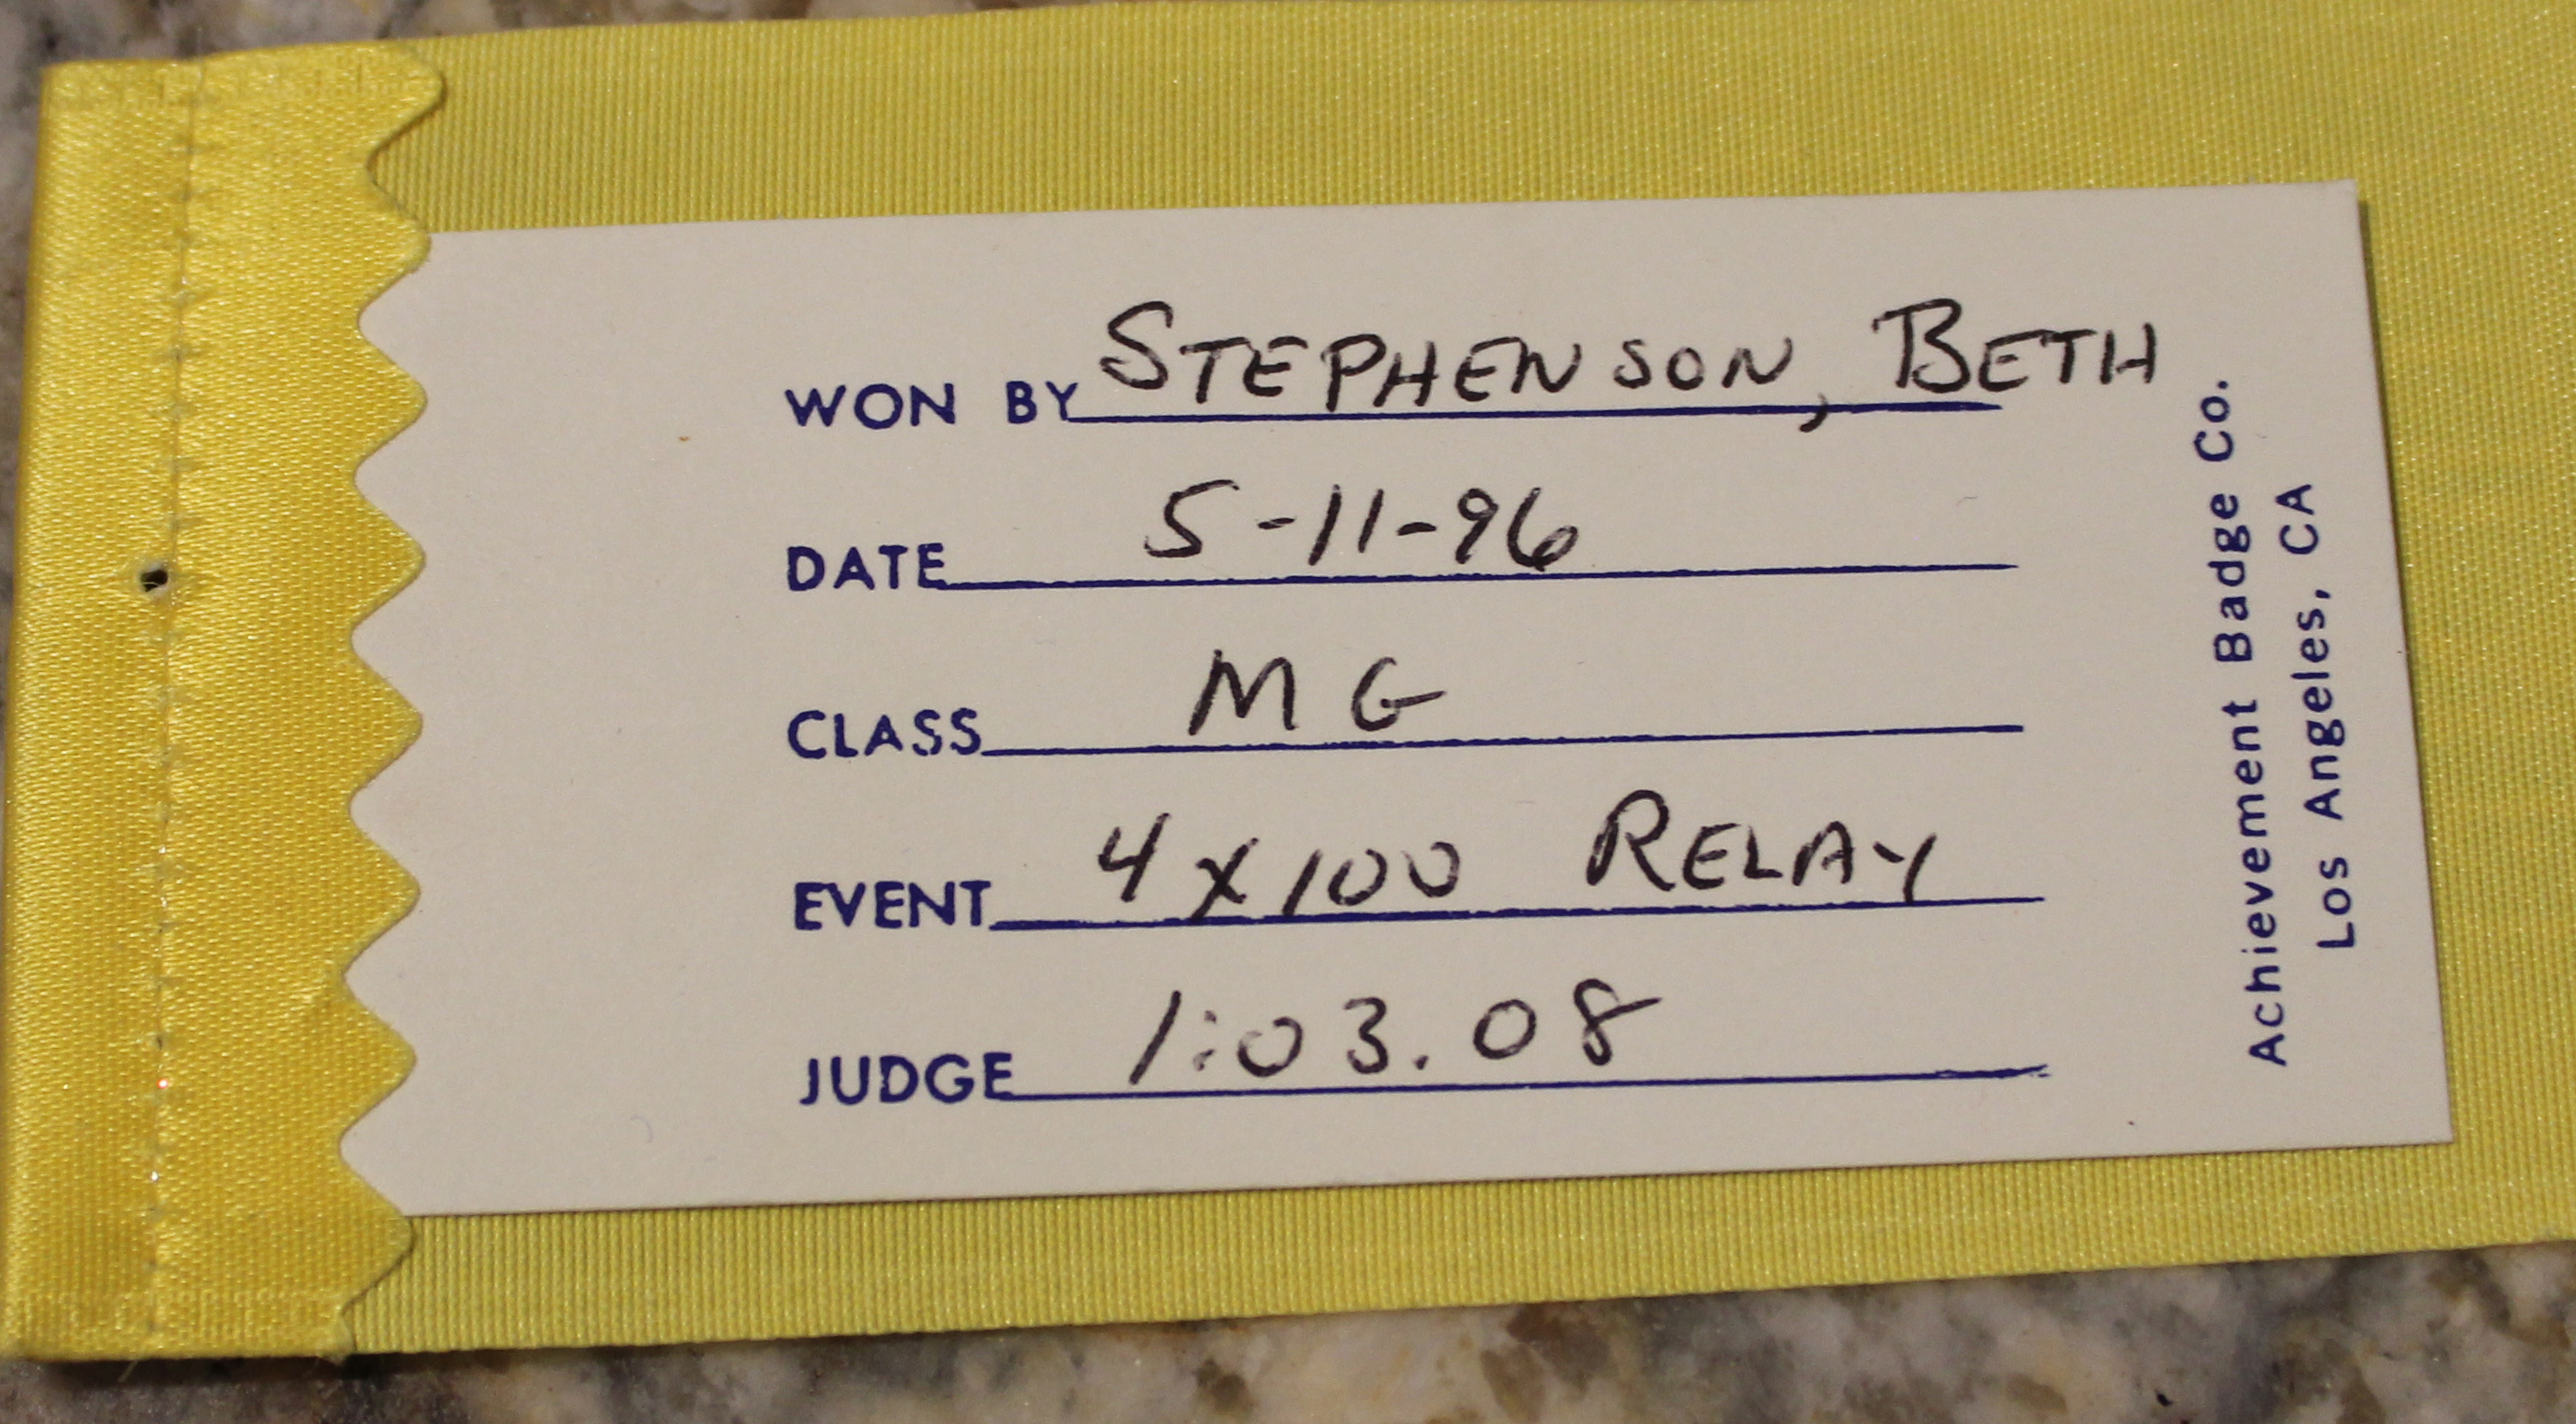 WON BY STEPHENSON, BETH
DATE 5-11-96
CLASS MG
EVENT 4x100 RELAY
JUDGE 1:03.08
Achievement Badge Co.
Los Angeles, CA